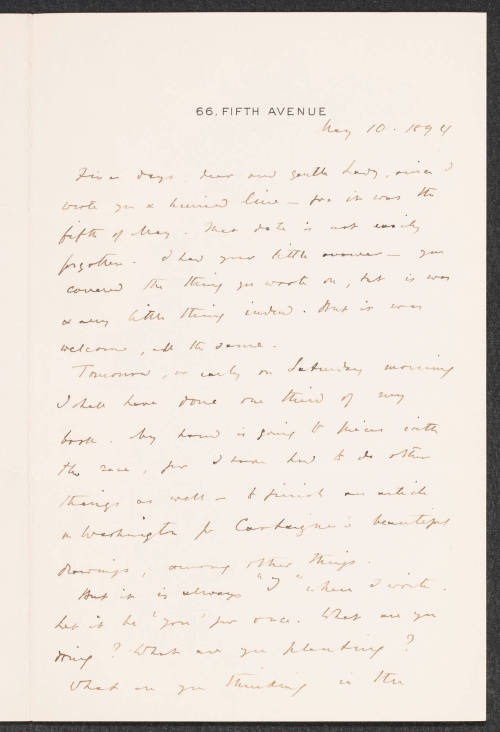 66, FIFTH AVENUE
May 10. 1894
Five days, dear and gentle Lady, since I
wrote you a hurried line — for it was the
fifth of May. That date is not easily
forgotten. I had your little answer — you
covered the thing you wrote on, but it was
a very little thing indeed. But it was
welcome, all the same.
Tomorrow, or early on Saturday morning
I shall have done one third of my
book. My hand is going to pieces with
the race, for I have had to do other
things as well — to finish an article
on Washington for Castaigne's beautiful
drawings, among other things.
But it is always "I" when I write.
Let it be 'you' for once. What are you
doing? What are you planting?
What are you thinking in the